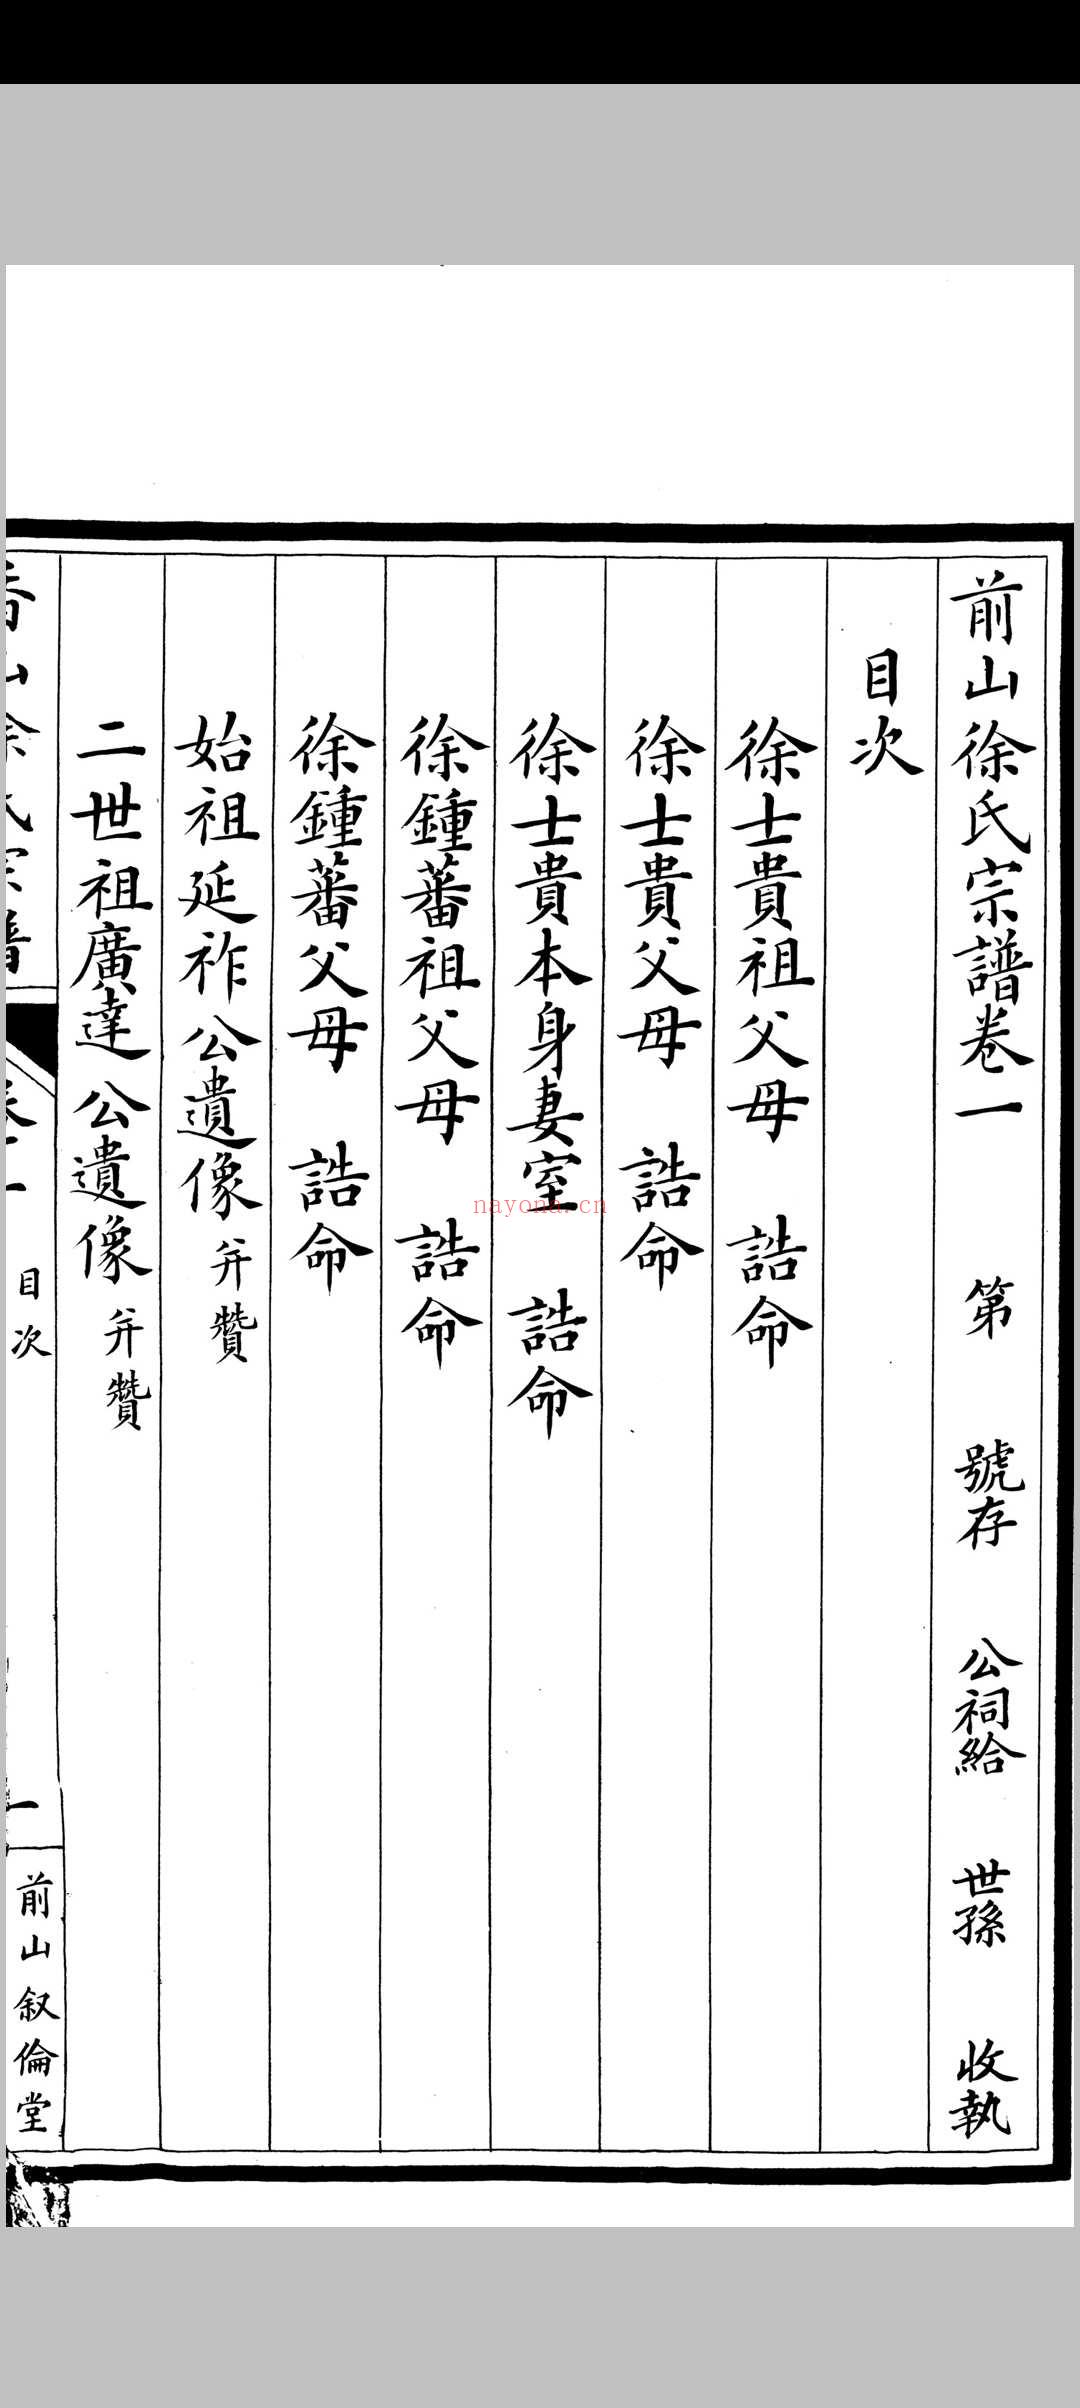 前山徐氏宗譜卷一 第 號存 公祠給 世孫 收執
目次
徐士貴祖父母 誥命
徐士貴父母 誥命
徐士貴本身妻室 誥命
徐鍾蕃祖父母 誥命
徐鍾蕃父母 誥命
始祖延祚公遺像 并贊
二世祖廣達公遺像 并贊
香山徐氏宗譜 卷一 目次 一 前山叙倫堂
nayona.cn